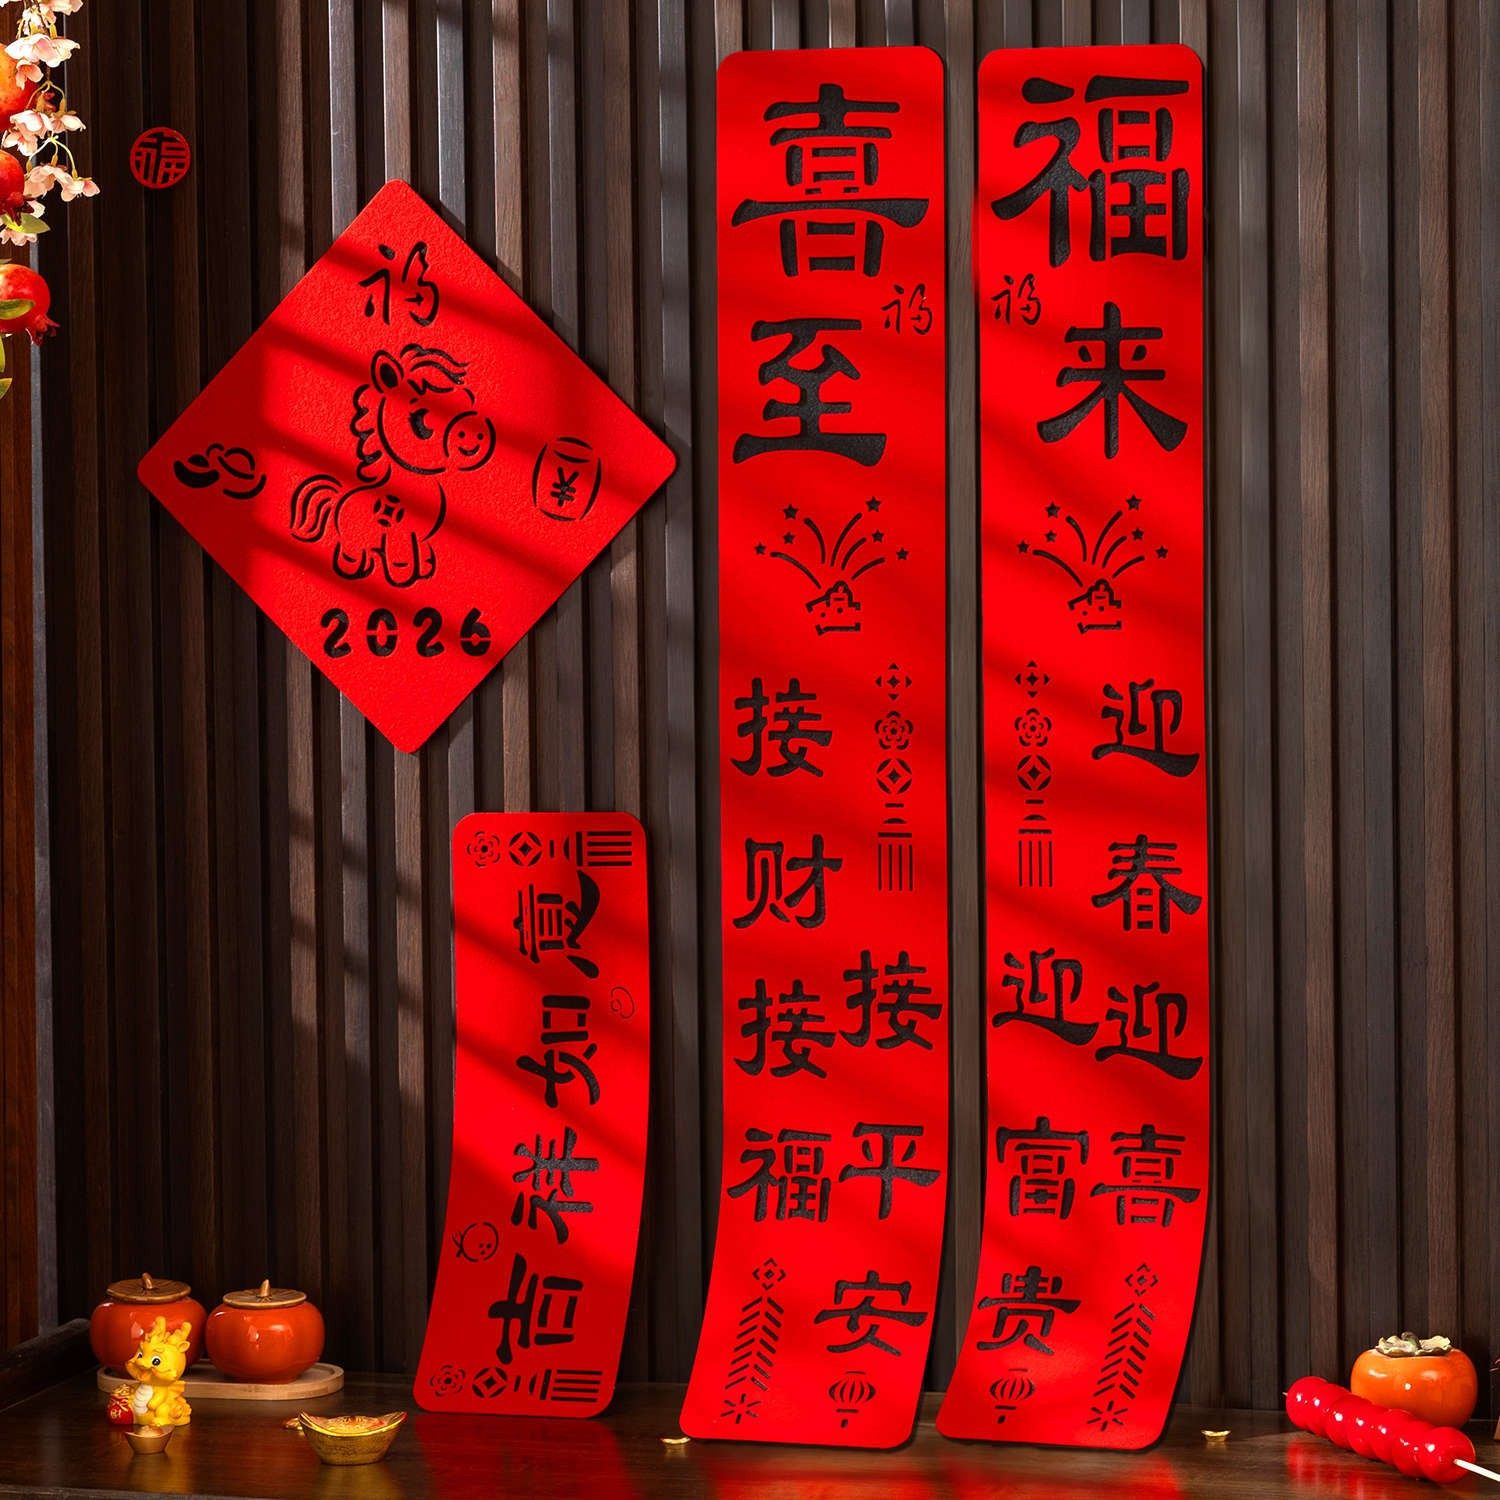 福
福
2026
吉祥如意
福来
福
迎春迎喜
迎富贵
喜至
福
接财接福
接平安